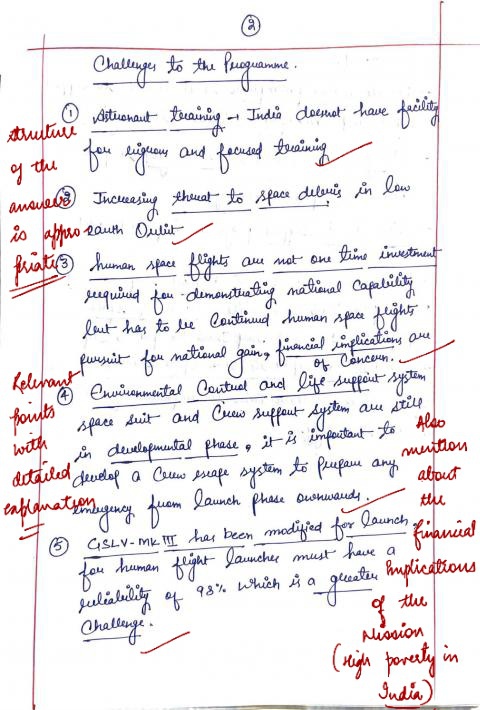 2
Challenges to the Programme.
① Astronaut training → India doesnot have facility
for rigrous and focused training
② Increasing threat to space debris in low
earth Orbit
③ human space flights are not one time investment
required for demonstrating national Capability
but has to be Continued human space flights
pursuit for national gain, financial implications are
of Concern.
④ Environmental Control and life support system
space suit and Crew support system are still
in developmental phase, it is important to
develop a Crew escape system to prepare any
emergency from launch phase ownwards.
⑤ GSLV-MK III has been modified for launch,
for human flight launches must have a
reliability of 98% which is a greater
Challenge.
structure
of the
answer
is appro-
priate
Relevant
points
with
detailed
explanation
Also
mention
about
the
financial
implications
of the
Mission
(High poverty in
India)